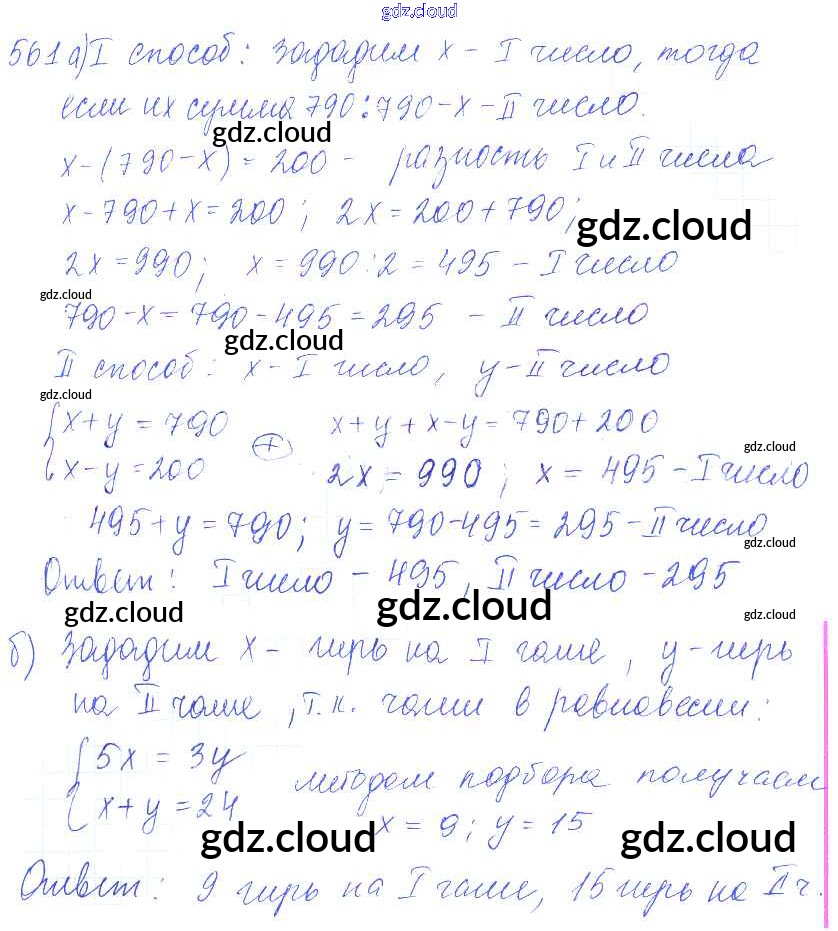 gdz.cloud
561 а) I способ: Зададим х - I число, тогда
если их сумма 790: 790-х - II число.
gdz.cloud
х-(790-х) = 200 - разность I и II числа
х-790+х=200; 2х=200+790;
gdz.cloud
2х=990; х=990:2=495 - I число
gdz.cloud
790-х=790-495=295 - II число
gdz.cloud
II способ: х - I число, у - II число
gdz.cloud
{х+у=790 (+) х+у+х-у=790+200
gdz.cloud
{х-у=200 2х=990; х=495 - I число
495+у=790; у=790-495=295 - II число
gdz.cloud
Ответ: I число - 495, II число - 295
gdz.cloud gdz.cloud gdz.cloud
б) Зададим х - гирь на I чаше, у - гирь
на II чаше, т.к. чаши в равновесии:
{5х=3у
{х+у=24 методом подбора получаем
х=9; у=15
gdz.cloud gdz.cloud
Ответ: 9 гирь на I чаше, 15 гирь на II ч.